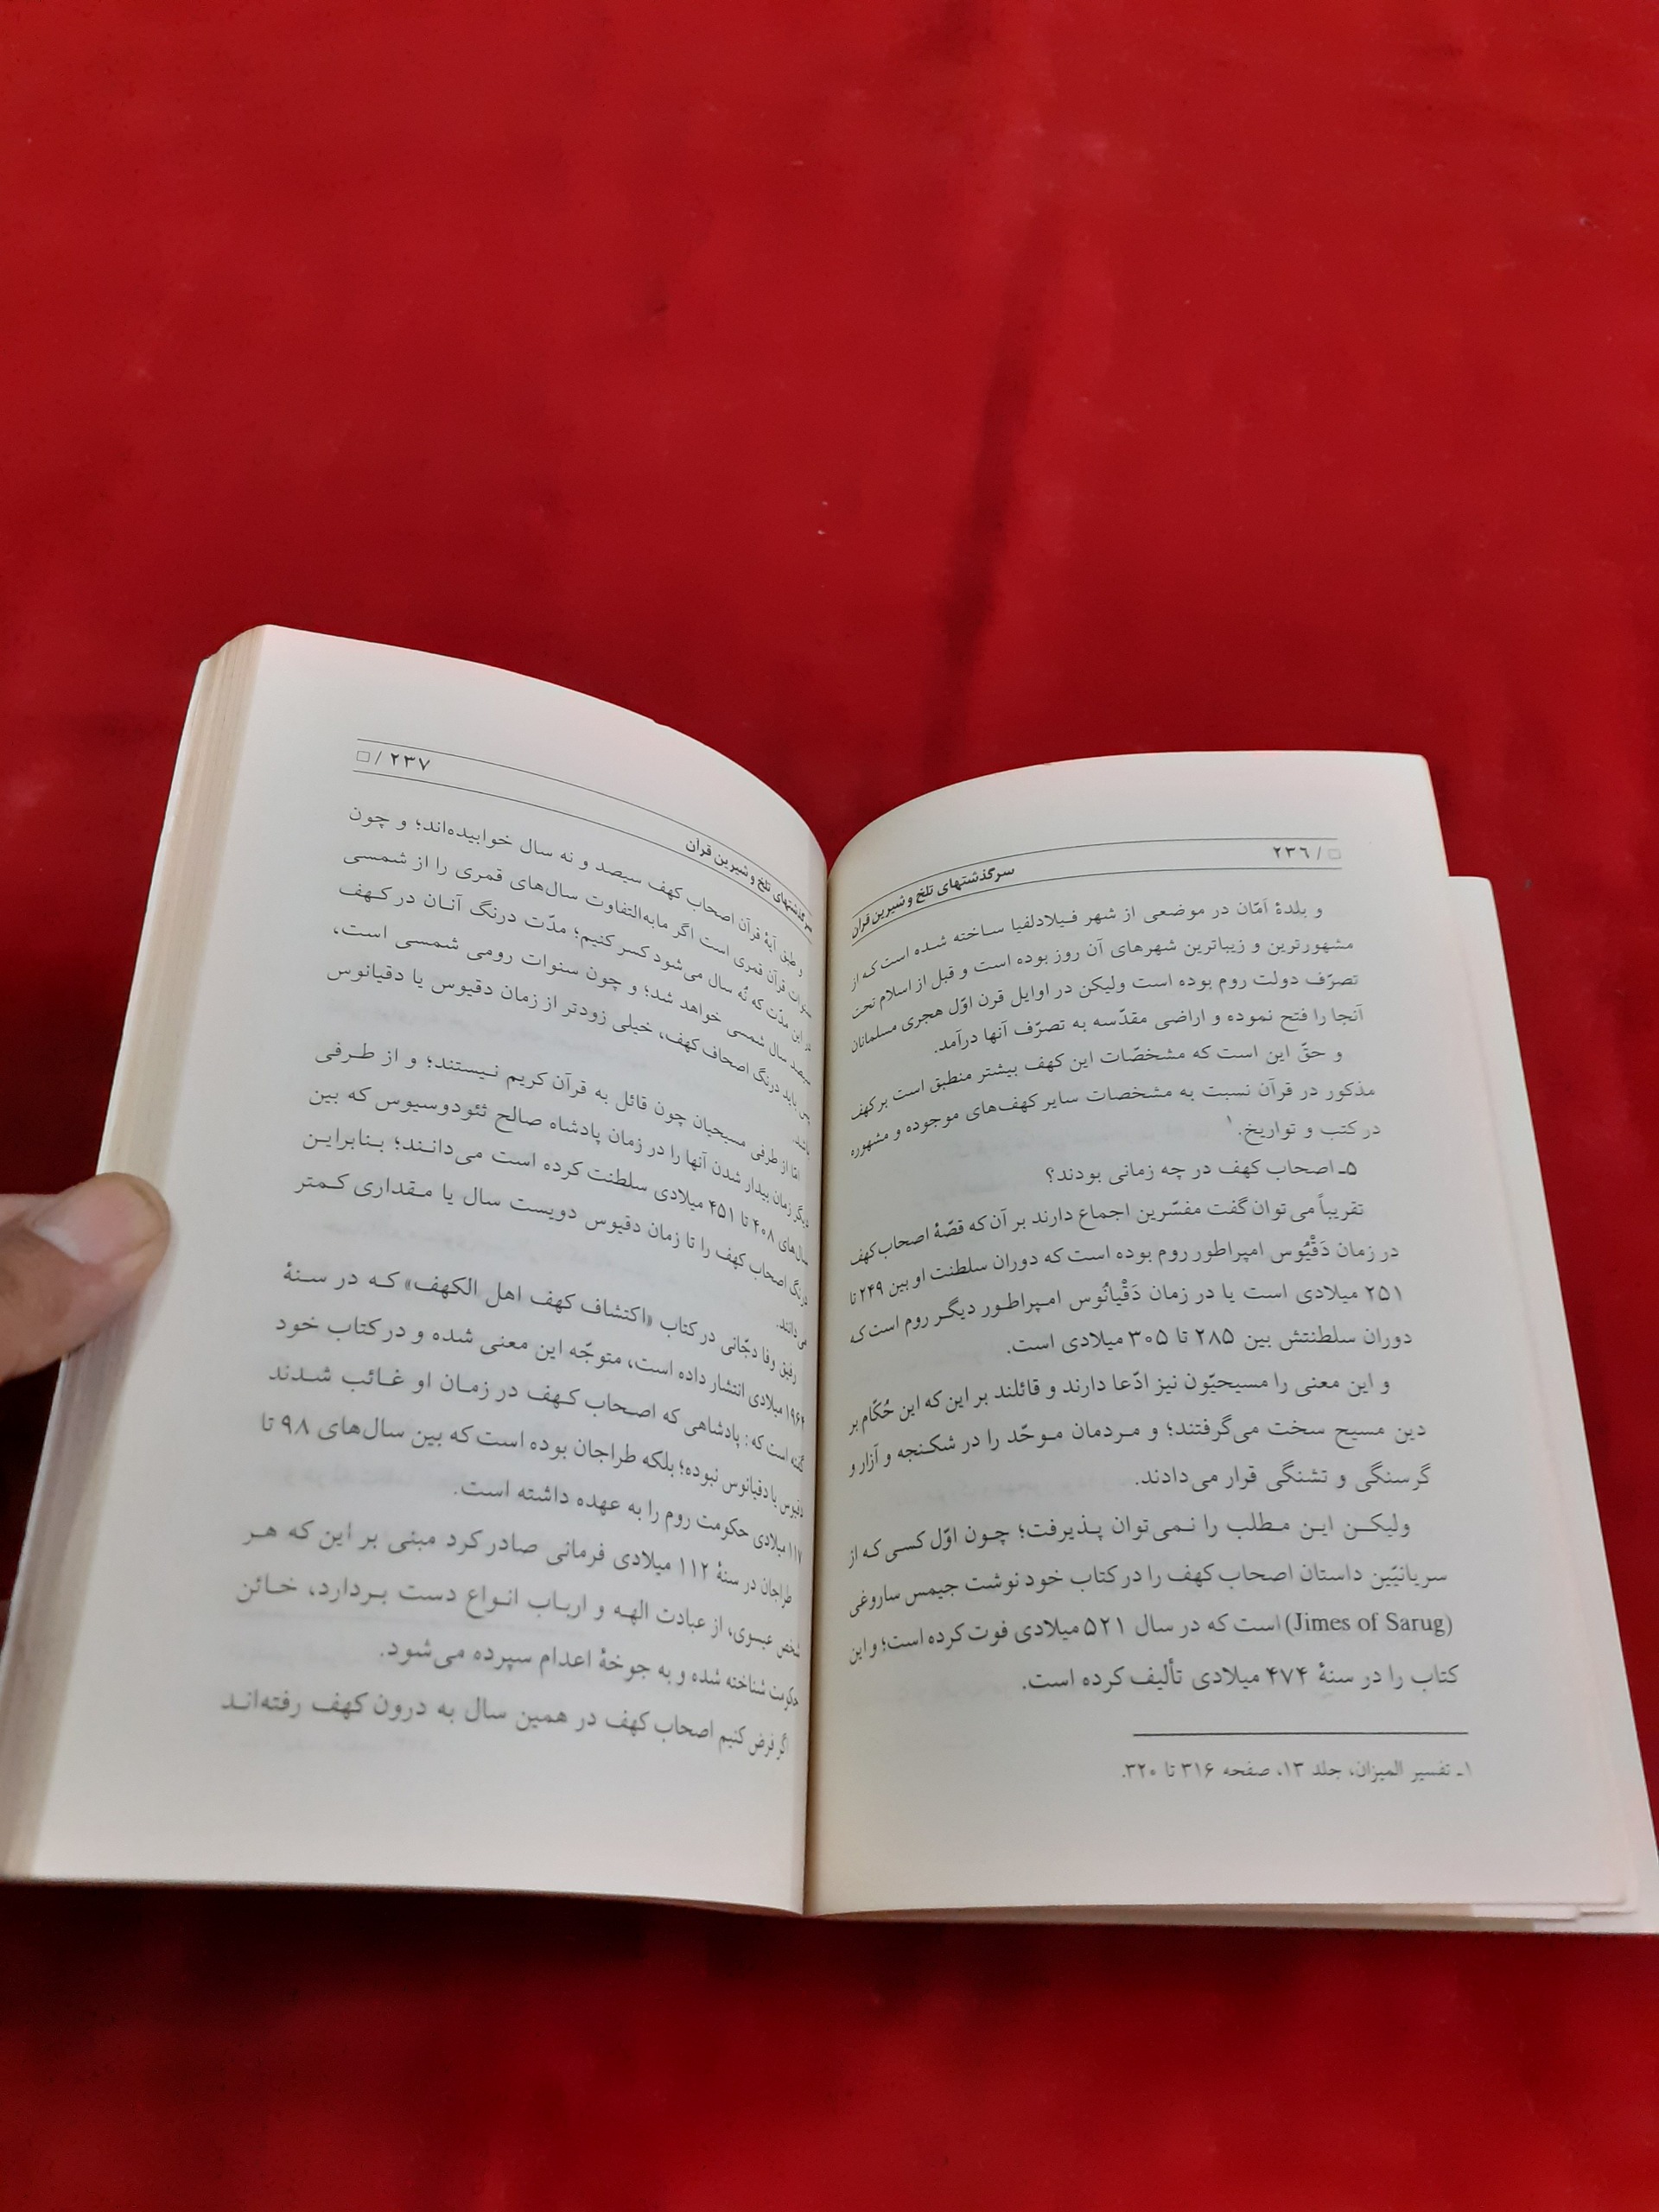 ۲۳۶ /
سرگذشتهای تلخ و شیرین قرآن
و بلدهٔ اَمّان در موضعی از شهر فیلادلفیا ساخته شده است که از
مشهورترین و زیباترین شهرهای آن روز بوده است و قبل از اسلام تحت
تصرّف دولت روم بوده است ولیکن در اوایل قرن اوّل هجری مسلمانان
آنجا را فتح نموده و اراضی مقدّسه به تصرّف آنها درآمد.
و حقّ این است که مشخصّات این کهف بیشتر منطبق است بر کهف
مذکور در قرآن نسبت به مشخصات سایر کهف‌های موجوده و مشهوره
در کتب و تواریخ.۱
۵ـ اصحاب کهف در چه زمانی بودند؟
تقریباً می‌توان گفت مفسّرین اجماع دارند بر آن که قصّهٔ اصحاب کهف
در زمان دَقْیُوس امپراطور روم بوده است که دوران سلطنت او بین ۲۴۹ تا
۲۵۱ میلادی است یا در زمان دَقْیانُوس امپراطور دیگر روم است که
دوران سلطنتش بین ۲۸۵ تا ۳۰۵ میلادی است.
و این معنی را مسیحیّون نیز ادّعا دارند و قائلند بر این که این حُکّام بر
دین مسیح سخت می‌گرفتند؛ و مردمان موحّد را در شکنجه و آزار و
گرسنگی و تشنگی قرار می‌دادند.
ولیکن این مطلب را نمی‌توان پذیرفت؛ چون اوّل کسی که از
سریانیّین داستان اصحاب کهف را در کتاب خود نوشت جیمس ساروغی
(Jimes of Sarug) است که در سال ۵۲۱ میلادی فوت کرده است؛ و این
کتاب را در سنهٔ ۴۷۴ میلادی تألیف کرده است.
۱ـ تفسیر المیزان، جلد ۱۳، صفحه ۳۱۶ تا ۳۲۰.
۲۳۷ /
سرگذشتهای تلخ و شیرین قرآن
و طبق آیهٔ قرآن اصحاب کهف سیصد و نه سال خوابیده‌اند؛ و چون
سنوات قرآن قمری است اگر مابه‌التفاوت سال‌های قمری را از شمسی
در این مدّت که نُه سال می‌شود کسر کنیم؛ مدّت درنگ آنان در کهف
سیصد سال شمسی خواهد شد؛ و چون سنوات رومی شمسی است،
پس باید درنگ اصحاف کهف، خیلی زودتر از زمان دقیوس یا دقیانوس
باشد.
امّا از طرفی مسیحیان چون قائل به قرآن کریم نیستند؛ و از طرفی
دیگر زمان بیدار شدن آنها را در زمان پادشاه صالح تئودوسیوس که بین
سال‌های ۴۰۸ تا ۴۵۱ میلادی سلطنت کرده است می‌دانند؛ بنابراین
درنگ اصحاب کهف را تا زمان دقیوس دویست سال یا مقداری کمتر
می‌دانند.
رفیق وفا دجّانی در کتاب «اکتشاف کهف اهل الکهف» که در سنهٔ
۱۹۶۴ میلادی انتشار داده است، متوجّه این معنی شده و در کتاب خود
گفته است که: پادشاهی که اصحاب کهف در زمان او غائب شدند
دقیوس یا دقیانوس نبوده؛ بلکه طراجان بوده است که بین سال‌های ۹۸ تا
۱۱۷ میلادی حکومت روم را به عهده داشته است.
طراجان در سنهٔ ۱۱۲ میلادی فرمانی صادر کرد مبنی بر این که هر
شخص عیسوی، از عبادت الهه و ارباب انواع دست بردارد، خائن
حکومت شناخته شده و به جوخهٔ اعدام سپرده می‌شود.
اگر فرض کنیم اصحاب کهف در همین سال به درون کهف رفته‌اند